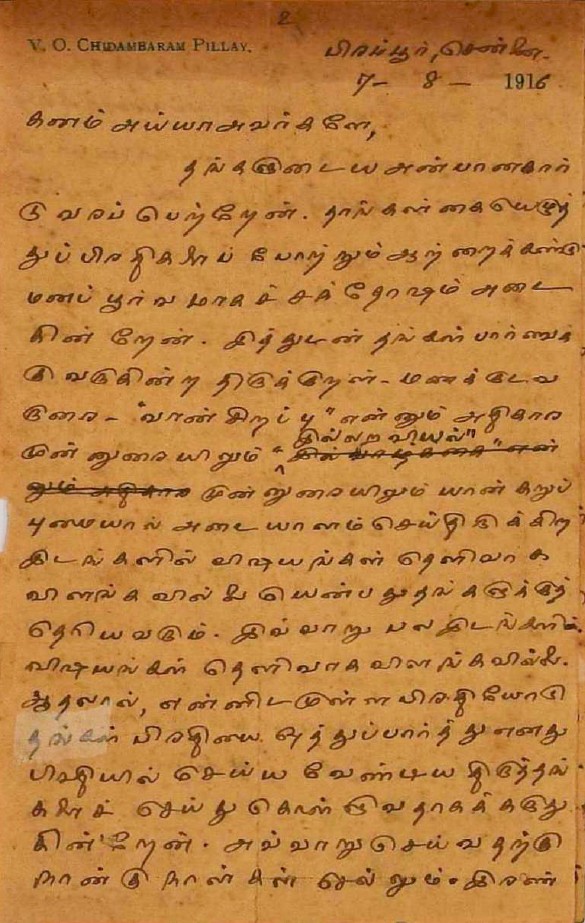 2
V. O. CHIDAMBARAM PILLAY.
பிரம்பூர், சென்னை.
7 – 8 – 1916
கனம் அய்யா அவர்களே,
தங்களுடைய அன்பான கார்
டு வரப் பெற்றேன். தாங்கள் கையெழுத்
துப் பிரதிகளைப் போற்றும் ஆற்றைக் கண்டு
மனப் பூர்வமாகச் சந்தோஷம் அடை
கின்றேன். இத்துடன் தங்கள் பார்வைக்
கு வருகின்ற திருக்குறள் - மணக்குடவ
ருரை - "வான் சிறப்பு" என்னும் அதிகார
முன்னுரையிலும் "இல்லறவியல்"
முன்னுரையிலும் யான் கறுப்
பு மையால் அடையாளம் செய்திருக்கிற
இடங்களில் விஷயங்கள் தெளிவாக
விளங்கவில்லை யென்பது தங்களுக்குத்
தெரியவரும். இவ்வாறு பல இடங்களில்
விஷயங்கள் தெளிவாக விளங்கவில்லை.
ஆதலால், என்னிடமுள்ள பிரதியோடு
தங்கள் பிரதியை ஒத்துப்பார்த்து எனது
பிரதியில் செய்ய வேண்டிய திருத்தங்
களைச் செய்து கொள்ளுவதாகக் கருது
கின்றேன். அவ்வாறு செய்வதற்கு
நான்கு நாள்கள் செல்லும். இரண்